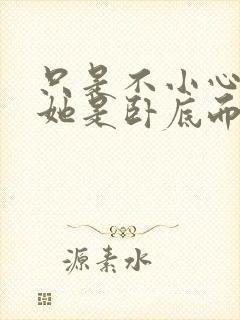 只是不小心
她是卧底而
源素水